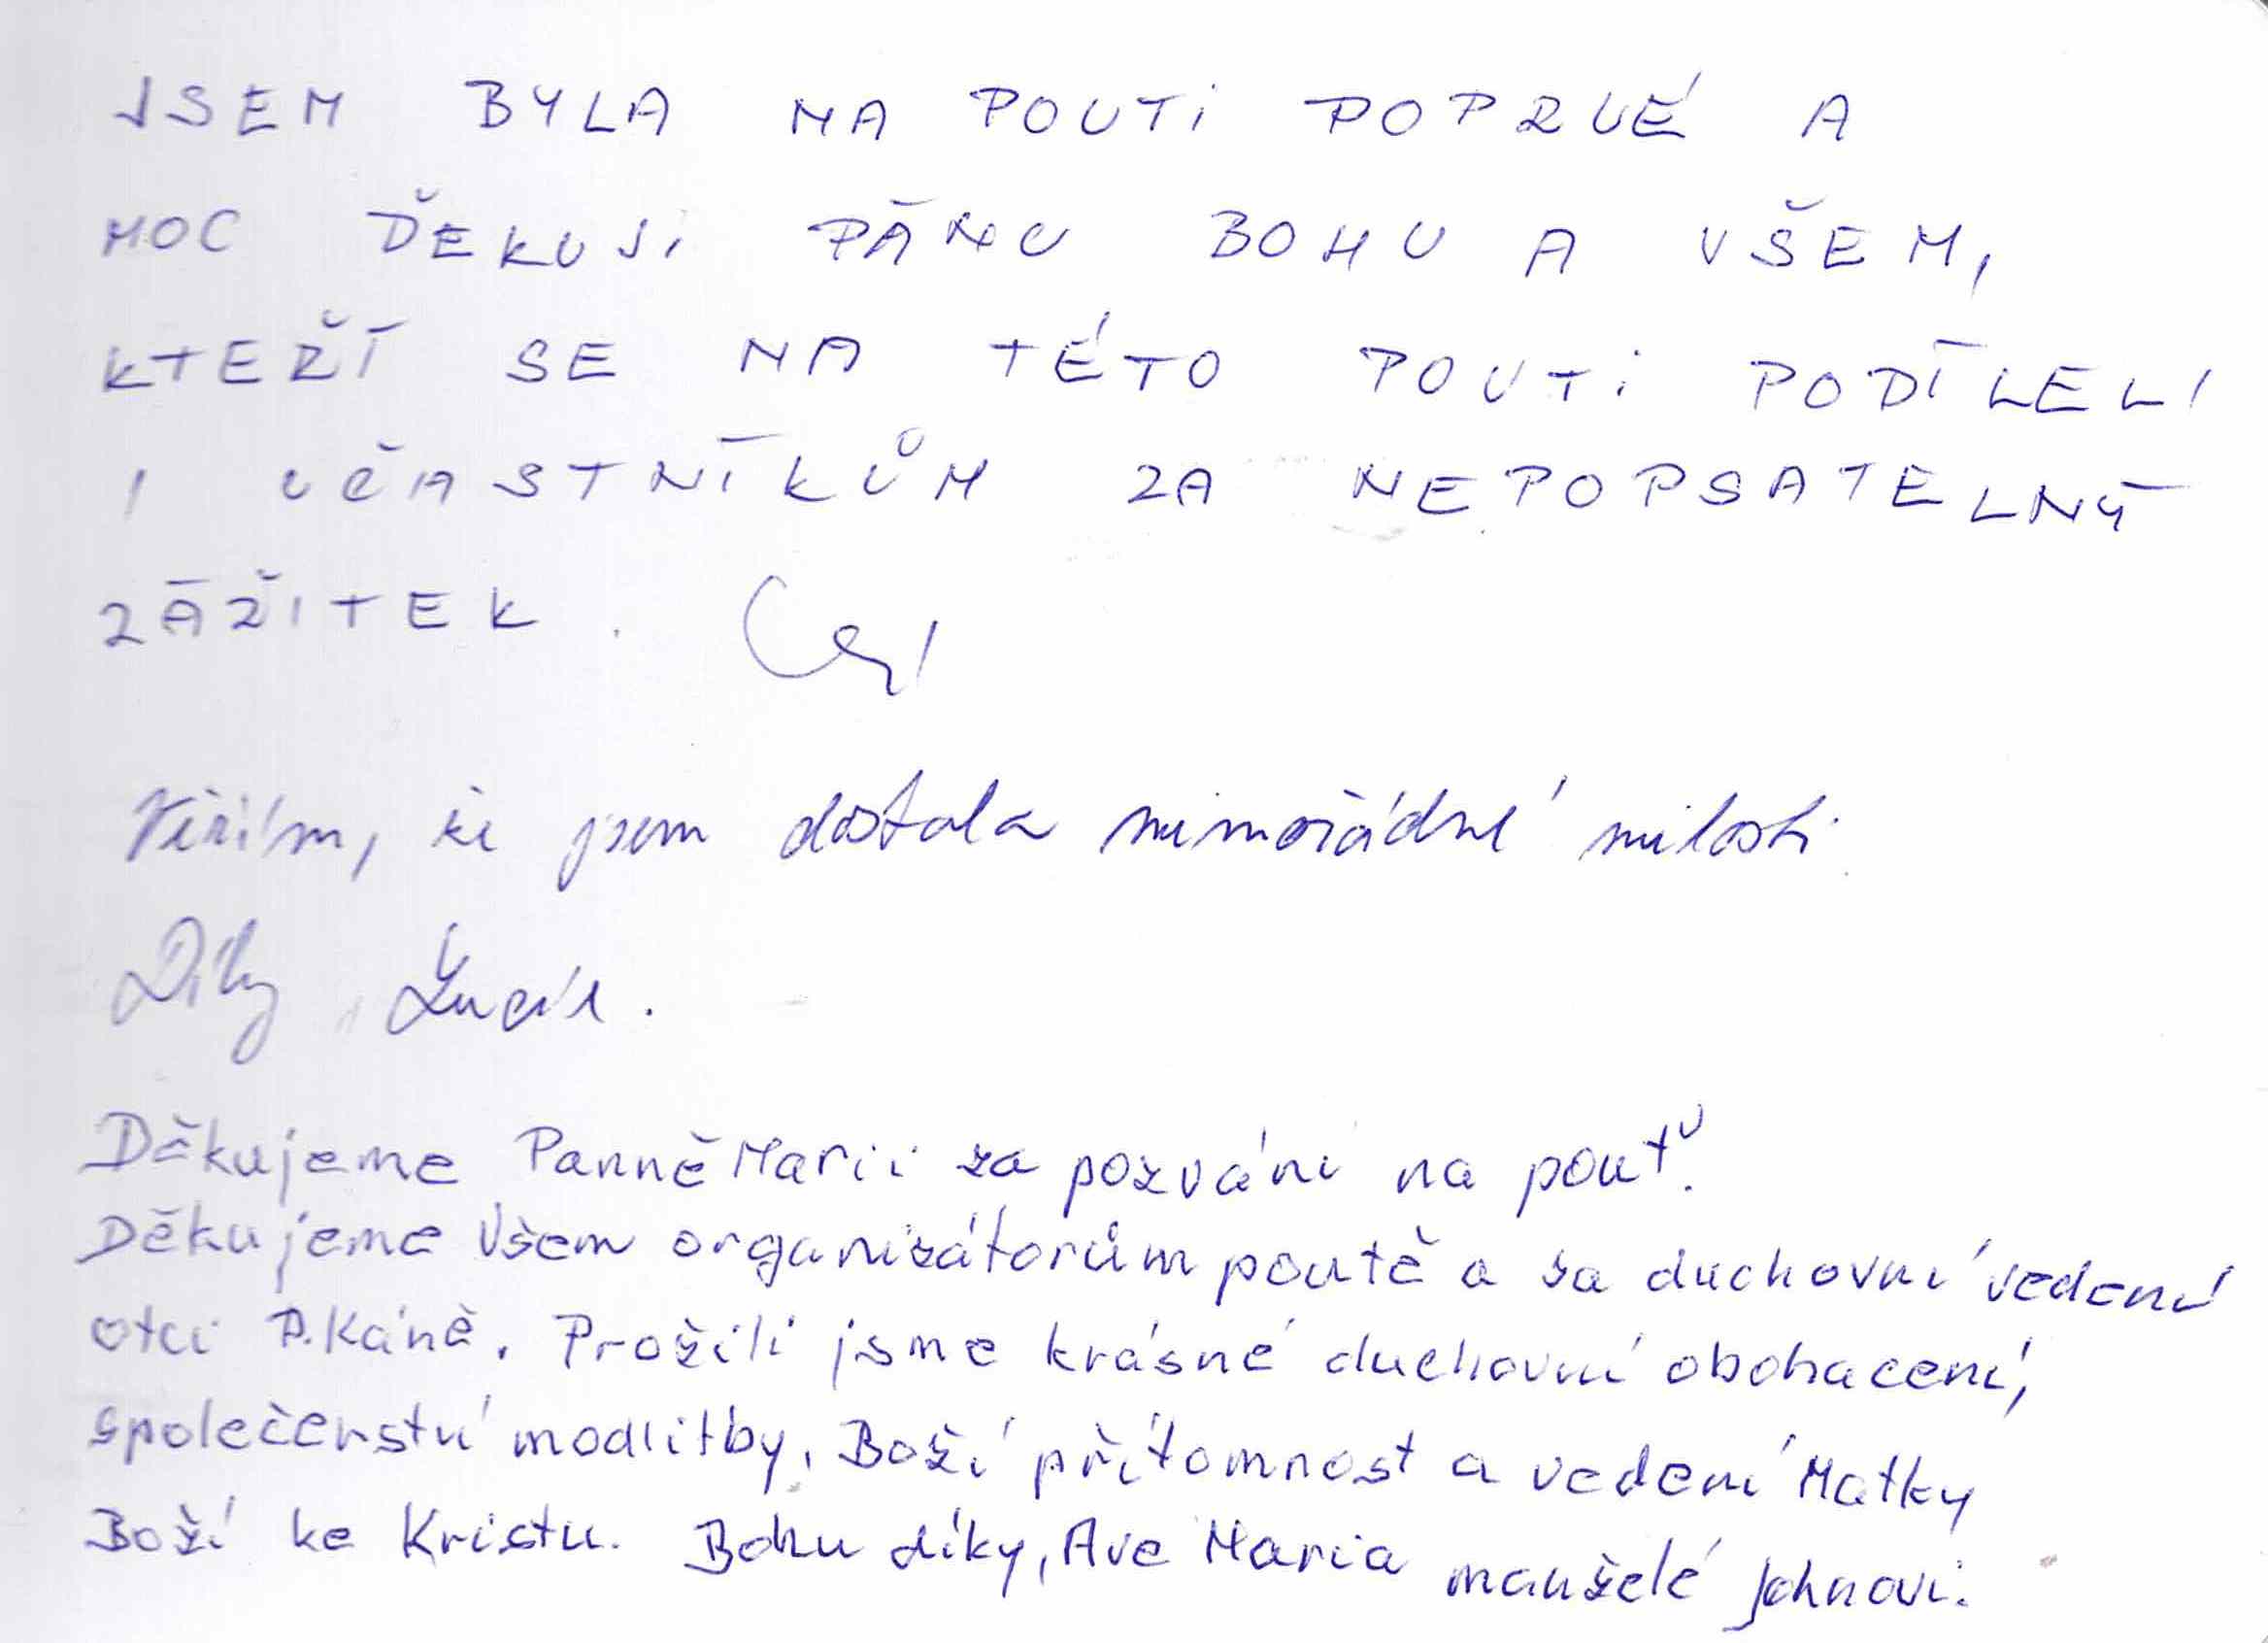 JSEM BYLA NA POUTI POPRVÉ A
MOC ĎEKUJI PÁNU BOHU A VŠEM,
KTEŘÍ SE NA TÉTO POUTI PODÍLELI
I UČASTNÍKŮM ZA NEPOPSATELNÝ
ZÁŽITEK.
Věřím, že jsem dostala mimořádné milosti.
Díky
Děkujeme Panně Marii za pozváni na pouť.
Děkujeme všem organizátorům poutě a za duchovní vedení
otci P. Káně. Prožili jsme krásné duchovní obohacení,
společenství modlitby, Boží přítomnost a vedení Matky
Boží ke Kristu. Bohu díky, Ave Maria manželé Johnovi.